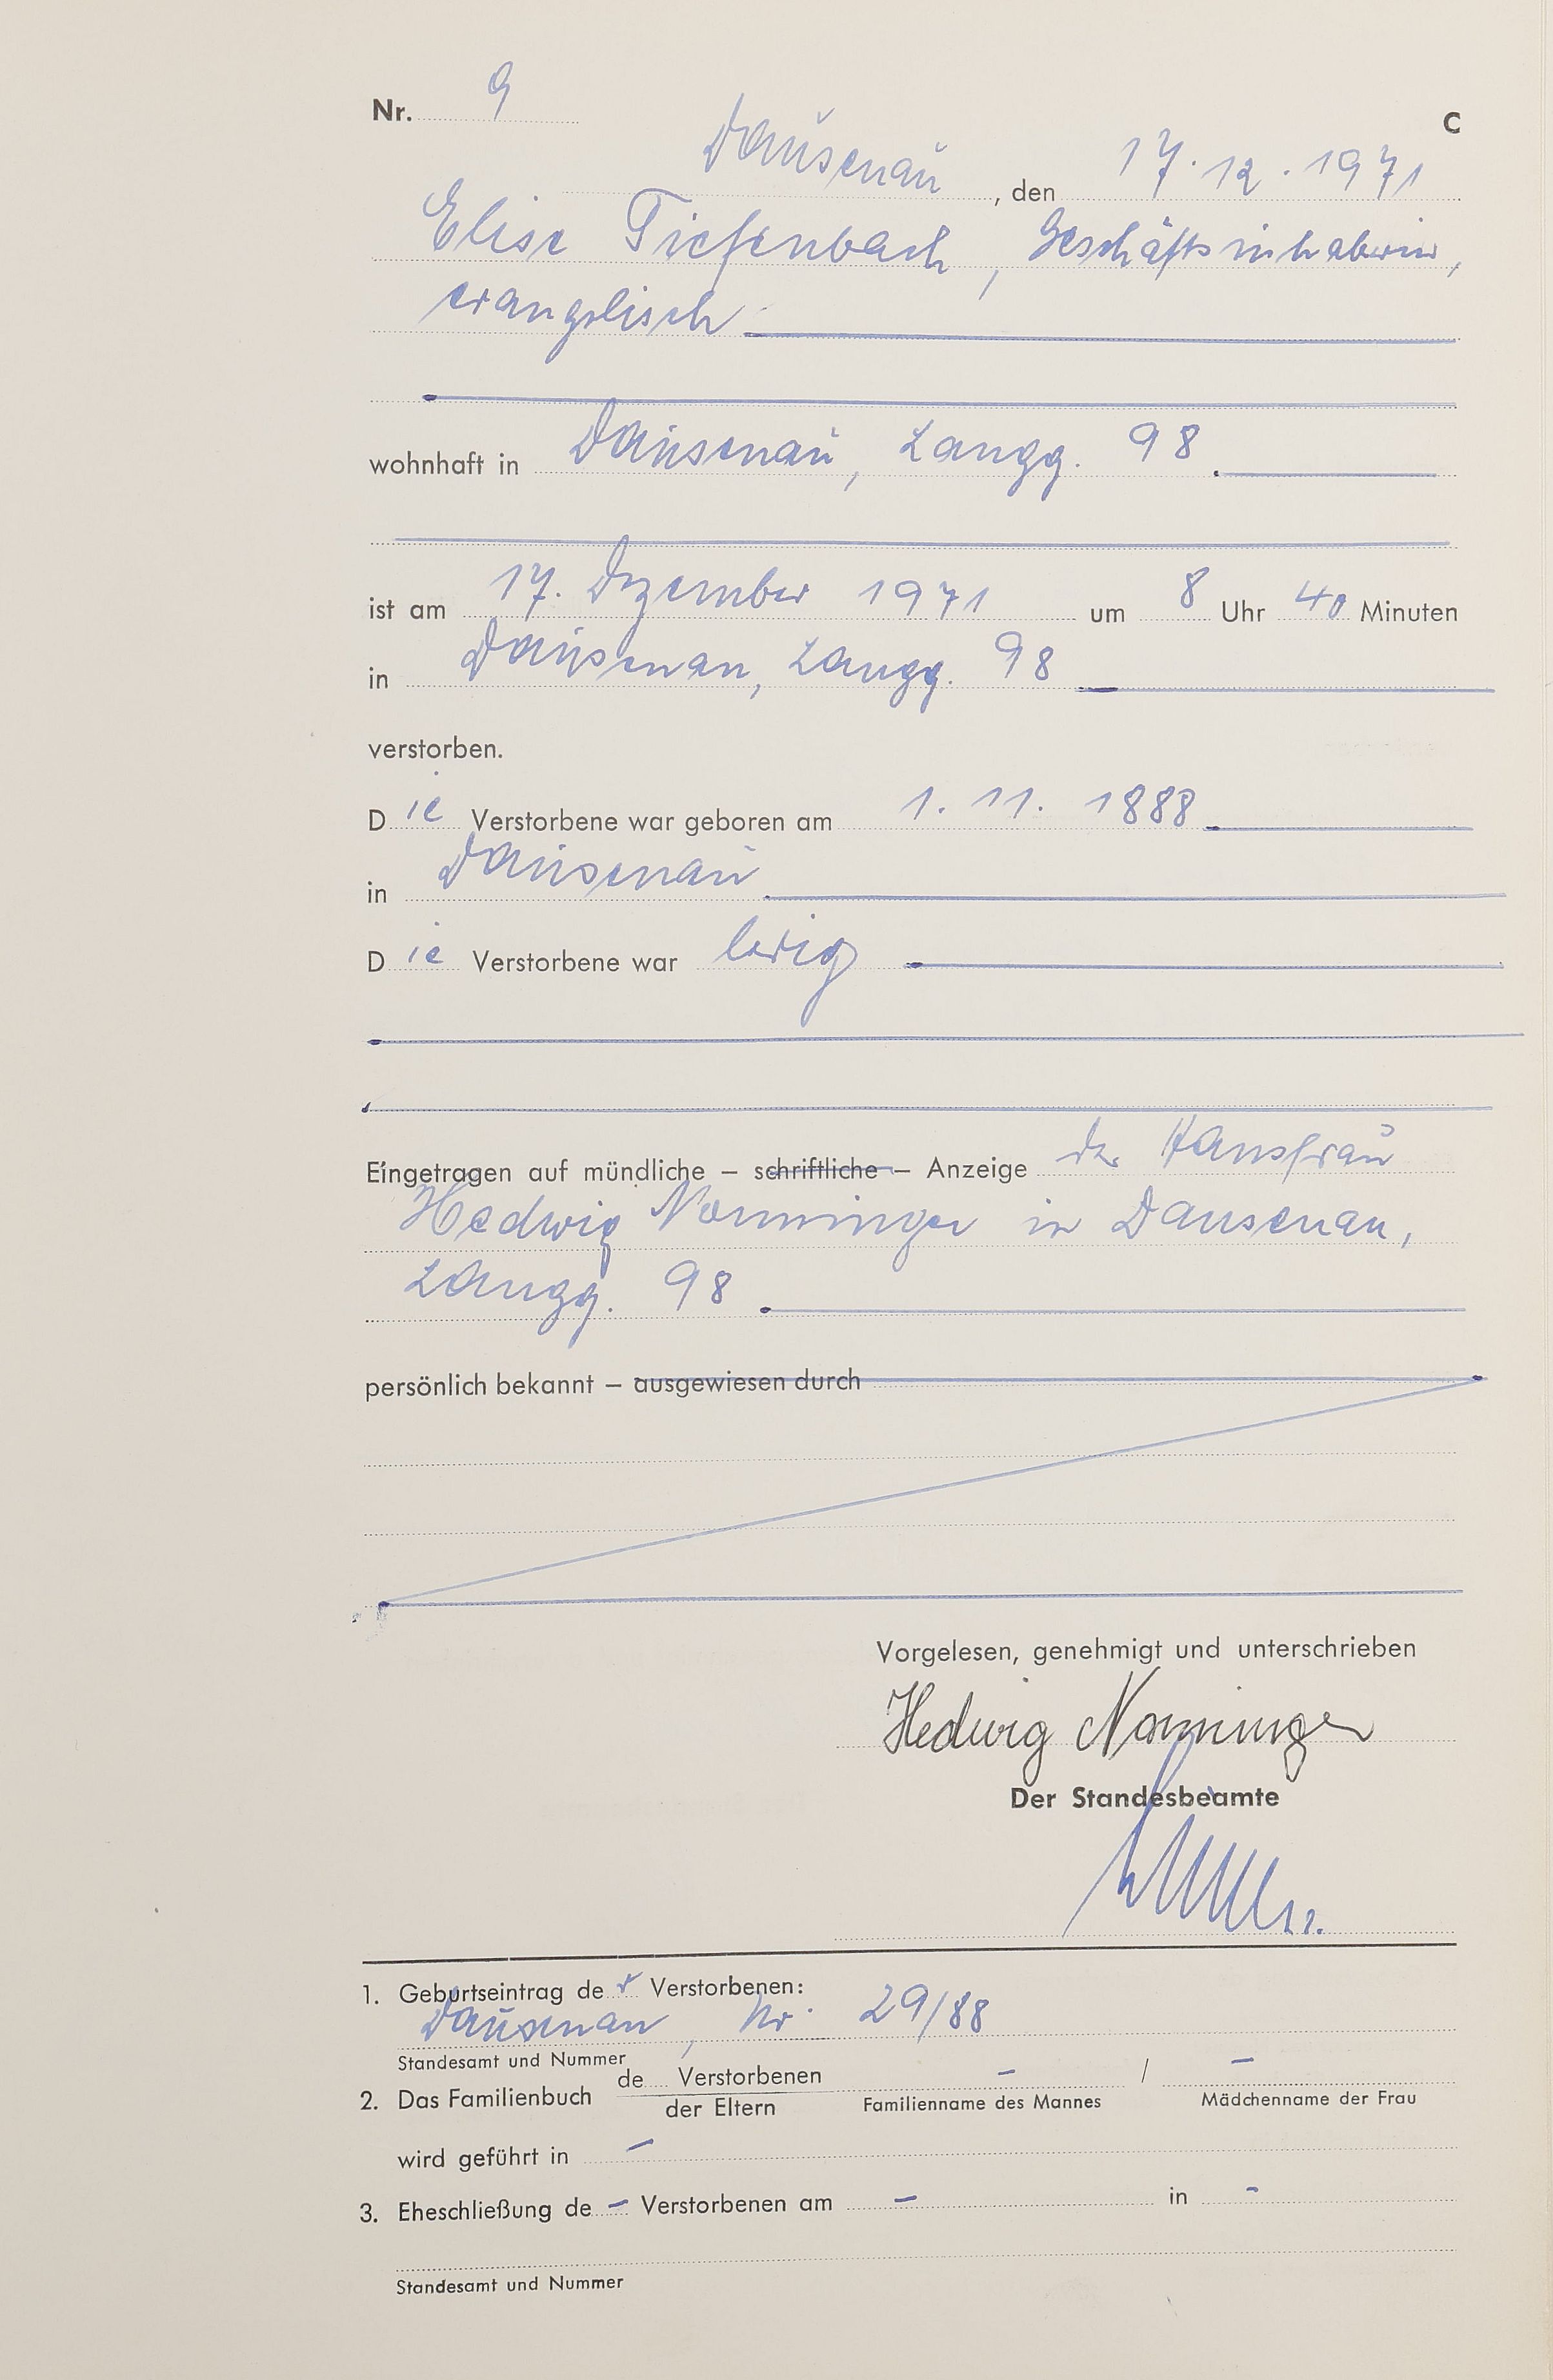 Nr. 9
C
Dausenau, den 17.12.1971
Elise Tiefenbach, Geschäftsinhaberin,
evangelisch
wohnhaft in Dausenau, Langg. 98.
ist am 17. Dezember 1971 um 8 Uhr 40 Minuten
in Dausenau, Langg. 98
verstorben.
Die Verstorbene war geboren am 1. 11. 1888
in Dausenau
Die Verstorbene war ledig
Eingetragen auf mündliche – schriftliche – Anzeige der Hausfrau
Hedwig Nonninger in Dausenau,
Langg. 98
persönlich bekannt – ausgewiesen durch
Vorgelesen, genehmigt und unterschrieben
Hedwig Nonninger
Der Standesbeamte
1. Geburtseintrag der Verstorbenen:
Dausenau, Nr. 29/88
Standesamt und Nummer
2. Das Familienbuch de Verstorbenen – / –
der Eltern Familienname des Mannes Mädchenname der Frau
wird geführt in –
3. Eheschließung de – Verstorbenen am – in –
Standesamt und Nummer